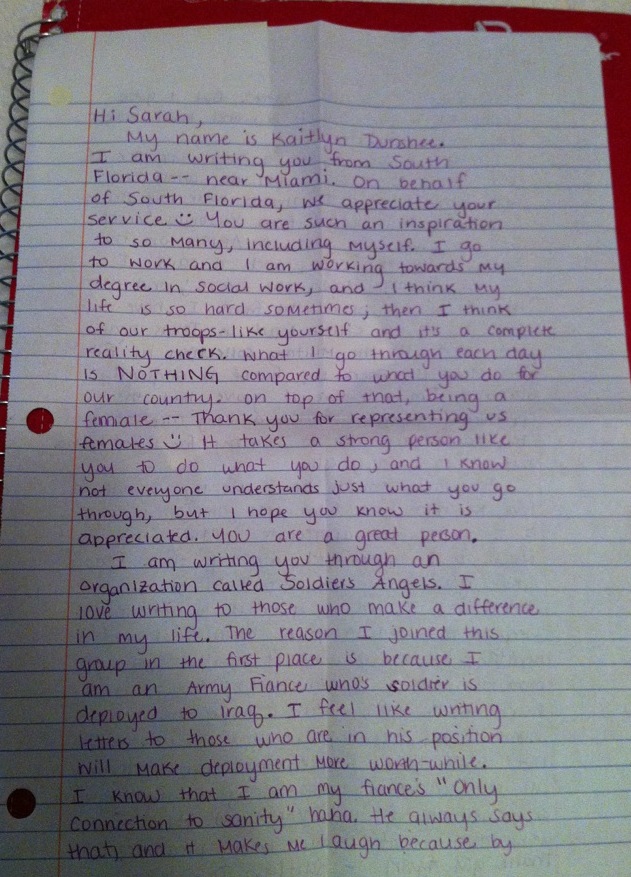 Hi Sarah,
My name is Kaitlyn Dunshee.
I am writing you from South
Florida -- near Miami. On behalf
of South Florida, we appreciate your
service :) You are such an inspiration
to so many, including myself. I go
to work and I am working towards my
degree in social work, and I think my
life is so hard sometimes, then I think
of our troops-like yourself and it's a complete
reality check. What I go through each day
is NOTHING compared to what you do for
our country. On top of that, being a
female -- Thank you for representing us
females :) It takes a strong person like
you to do what you do, and I know
not everyone understands just what you go
through, but I hope you know it is
appreciated. You are a great person.
I am writing you through an
organization called Soldiers Angels. I
love writing to those who make a difference
in my life. The reason I joined this
group in the first place is because I
am an Army Fiance who's soldier is
deployed to Iraq. I feel like writing
letters to those who are in his position
will make deployment more worth-while.
I know that I am my fiance's "only
connection to sanity" haha. He always says
that, and it makes me laugh because by